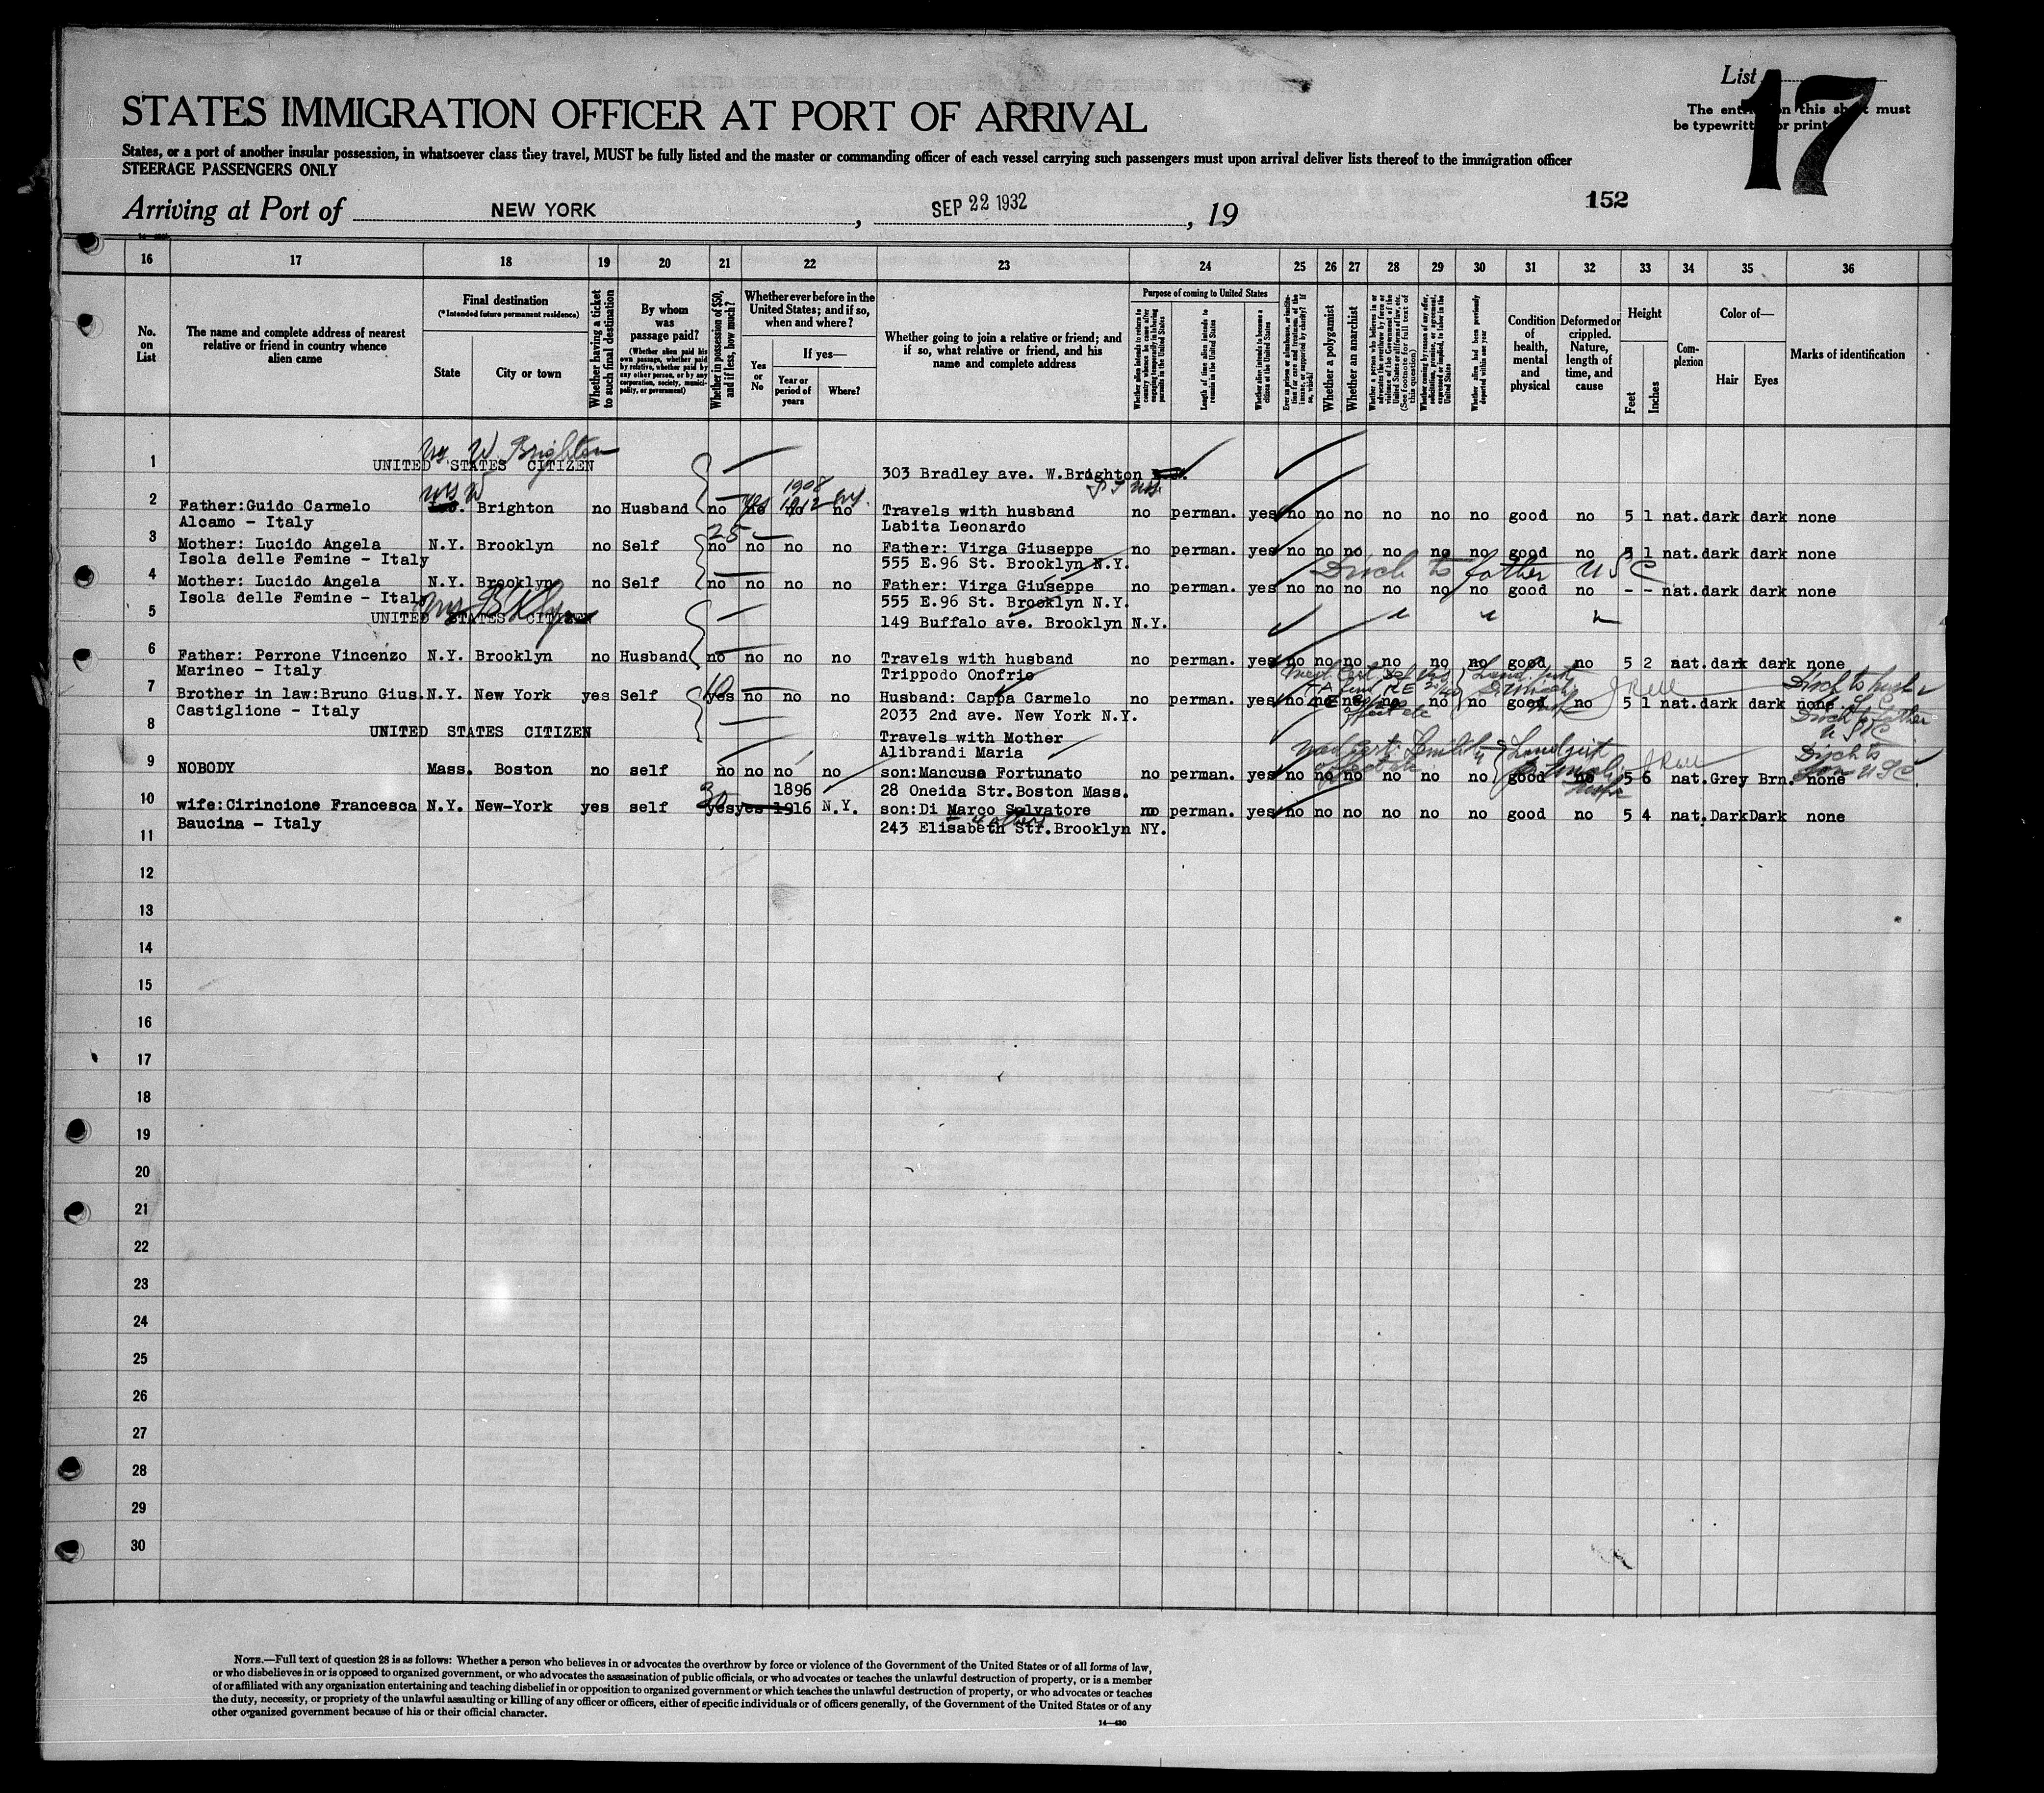 List 17
STATES IMMIGRATION OFFICER AT PORT OF ARRIVAL
The entries on this sheet must
be typewritten or printed
States, or a port of another insular possession, in whatsoever class they travel, MUST be fully listed and the master or commanding officer of each vessel carrying such passengers must upon arrival deliver lists thereof to the immigration officer
STEERAGE PASSENGERS ONLY
Arriving at Port of NEW YORK, SEP 22 1932, 19
152
16 17 18 19 20 21 22 23 24 25 26 27 28 29 30 31 32 33 34 35 36
No. on List
The name and complete address of nearest relative or friend in country whence alien came
Final destination
(*Intended future permanent residence)
State
City or town
Whether having a ticket to such final destination
By whom was passage paid?
(Whether alien paid his own passage, whether paid by relative, whether paid by any other person, or by any corporation, society, municipality, or government)
Whether in possession of $50, and if less, how much?
Whether ever before in the United States; and if so, when and where?
Yes or No
If yes—
Year or period of years
Where?
Whether going to join a relative or friend; and if so, what relative or friend, and his name and complete address
Purpose of coming to United States
Whether alien intends to return to country whence he came after engaging temporarily in laboring pursuits in the United States
Length of time alien intends to remain in the United States
Whether alien intends to become a citizen of the United States
Whether a polygamist
Whether an anarchist
Condition of health, mental and physical
Deformed or crippled. Nature, length of time, and cause
Height
Feet
Inches
Complexion
Color of—
Hair
Eyes
Marks of identification
1 UNITED STATES CITIZEN W. Brighton 303 Bradley ave. W.Brighton
2 Father:Guido Carmelo Brighton no Husband no yes 1908 1912 no Travels with husband no perman. yes no no no no no no good no 5 1 nat. dark dark none
Alcamo - Italy Labita Leonardo
3 Mother: Lucido Angela N.Y. Brooklyn no Self 25 no no no no Father: Virga Giuseppe no perman. yes no no no no no no good no 5 1 nat. dark dark none
Isola delle Femine - Italy 555 E.96 St. Brooklyn N.Y. Disch to father USC
4 Mother: Lucido Angela N.Y. Brooklyn no Self no no no no Father: Virga Giuseppe no perman. yes no no no no no no good no - - nat. dark dark none
Isola delle Femine - Italy 555 E.96 St. Brooklyn N.Y.
5 UNITED STATES CITIZEN NY Bklyn 149 Buffalo ave. Brooklyn N.Y.
6 Father: Perrone Vincenzo N.Y. Brooklyn no Husband no no no no Travels with husband no perman. yes no no no no no no good no 5 2 nat. dark dark none
Marineo - Italy Trippodo Onofrio
7 Brother in law:Bruno Gius. N.Y. New York yes Self 10 yes no no no Husband: Cappa Carmelo no perman. yes no no no no no no good no 5 1 nat. dark dark none
Castiglione - Italy 2033 2nd ave. New York N.Y.
8 UNITED STATES CITIZEN Travels with Mother Disch to father USC
Alibrandi Maria
9 NOBODY Mass. Boston no self no no no no son:Mancuse Fortunato no perman. yes no no no no no no good no 5 6 nat. Grey Brn. none
28 Oneida Str.Boston Mass. Disch to son USC
10 wife:Cirincione Francesca N.Y. New-York yes self 30 yes yes 1896 1916 N.Y. son:Di Marco Salvatore no perman. yes no no no no no no good no 5 4 nat. Dark Dark none
Baucina - Italy 243 Elisabeth Str.Brooklyn NY.
11
12
13
14
15
16
17
18
19
20
21
22
23
24
25
26
27
28
29
30
NOTE.—Full text of question 28 is as follows: Whether a person who believes in or advocates the overthrow by force or violence of the Government of the United States or of all forms of law,
or who disbelieves in or is opposed to organized government, or who advocates the assassination of public officials, or who advocates or teaches the unlawful destruction of property, or is a member
of or affiliated with any organization entertaining and teaching disbelief in or opposition to organized government or which teaches the unlawful destruction of property, or who advocates or teaches
the duty, necessity, or propriety of the unlawful assaulting or killing of any officer or officers, either of specific individuals or of officers generally, of the Government of the United States or of any
other organized government because of his or their official character.
14—430